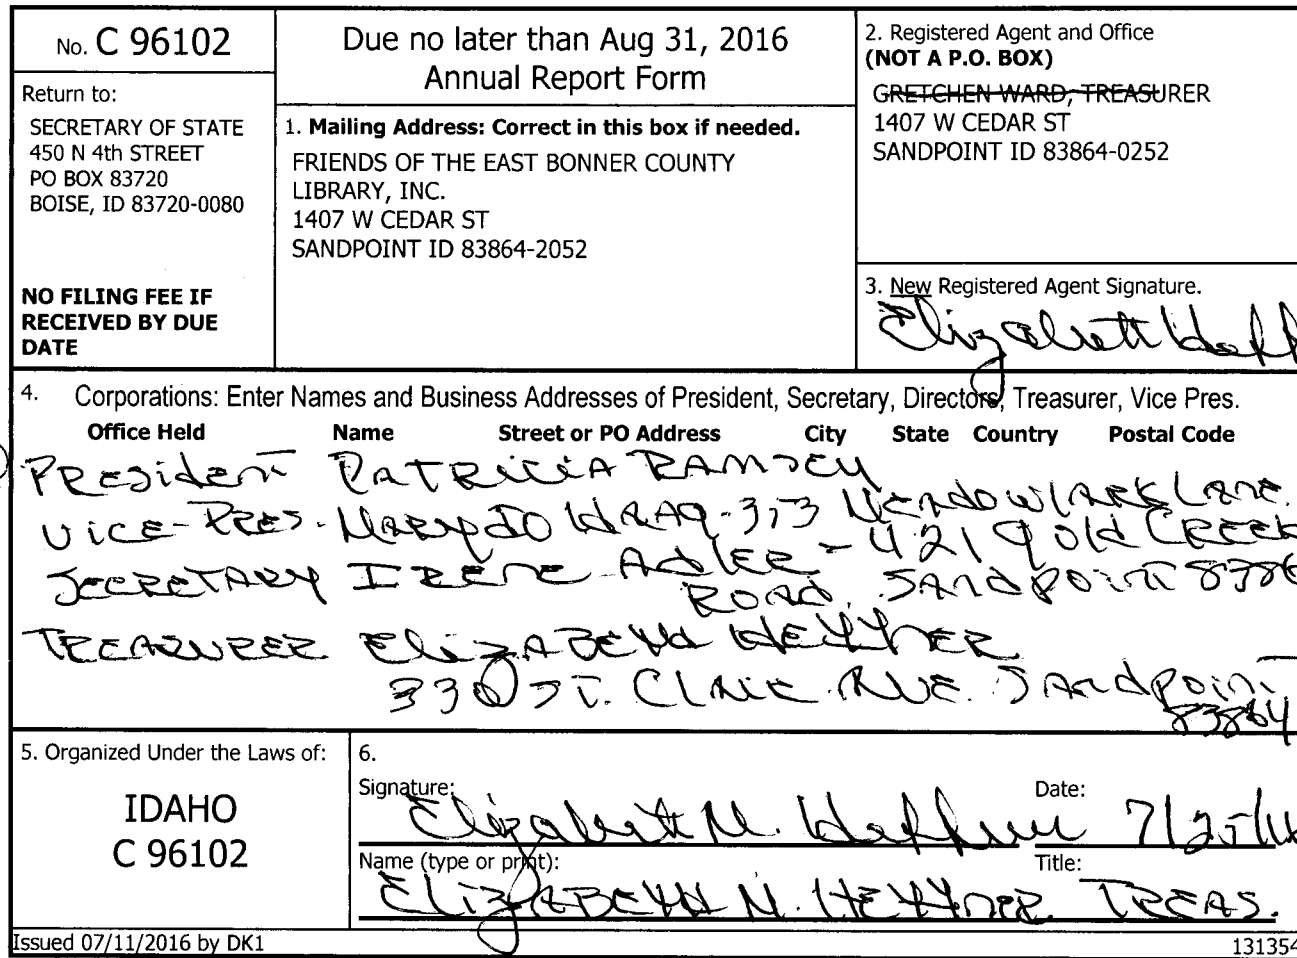 No. C 96102
Return to:
SECRETARY OF STATE
450 N 4th STREET
PO BOX 83720
BOISE, ID 83720-0080
NO FILING FEE IF
RECEIVED BY DUE
DATE
Due no later than Aug 31, 2016
Annual Report Form
1. Mailing Address: Correct in this box if needed.
FRIENDS OF THE EAST BONNER COUNTY
LIBRARY, INC.
1407 W CEDAR ST
SANDPOINT ID 83864-2052
2. Registered Agent and Office
(NOT A P.O. BOX)
GRETCHEN WARD, TREASURER
1407 W CEDAR ST
SANDPOINT ID 83864-0252
3. New Registered Agent Signature.
Elizabeth
4. Corporations: Enter Names and Business Addresses of President, Secretary, Directors, Treasurer, Vice Pres.
Office Held Name Street or PO Address City State Country Postal Code
President PATRICIA RAMSEY
VICE-PRES. MARY JO HAAG-313 Meadowlark Lane
SECRETARY IRENE ADLER - 4219 Old CREEK
ROAD, SANDPOINT 8386
TREASURER ElizABETH
330 ST. CLAIR AVE. SANDPOINT
83864
5. Organized Under the Laws of:
IDAHO
C 96102
6.
Signature: Elizabeth M. Date: 7/25/16
Name (type or print): ElizABETH M. Title: TREAS.
Issued 07/11/2016 by DK1
131354